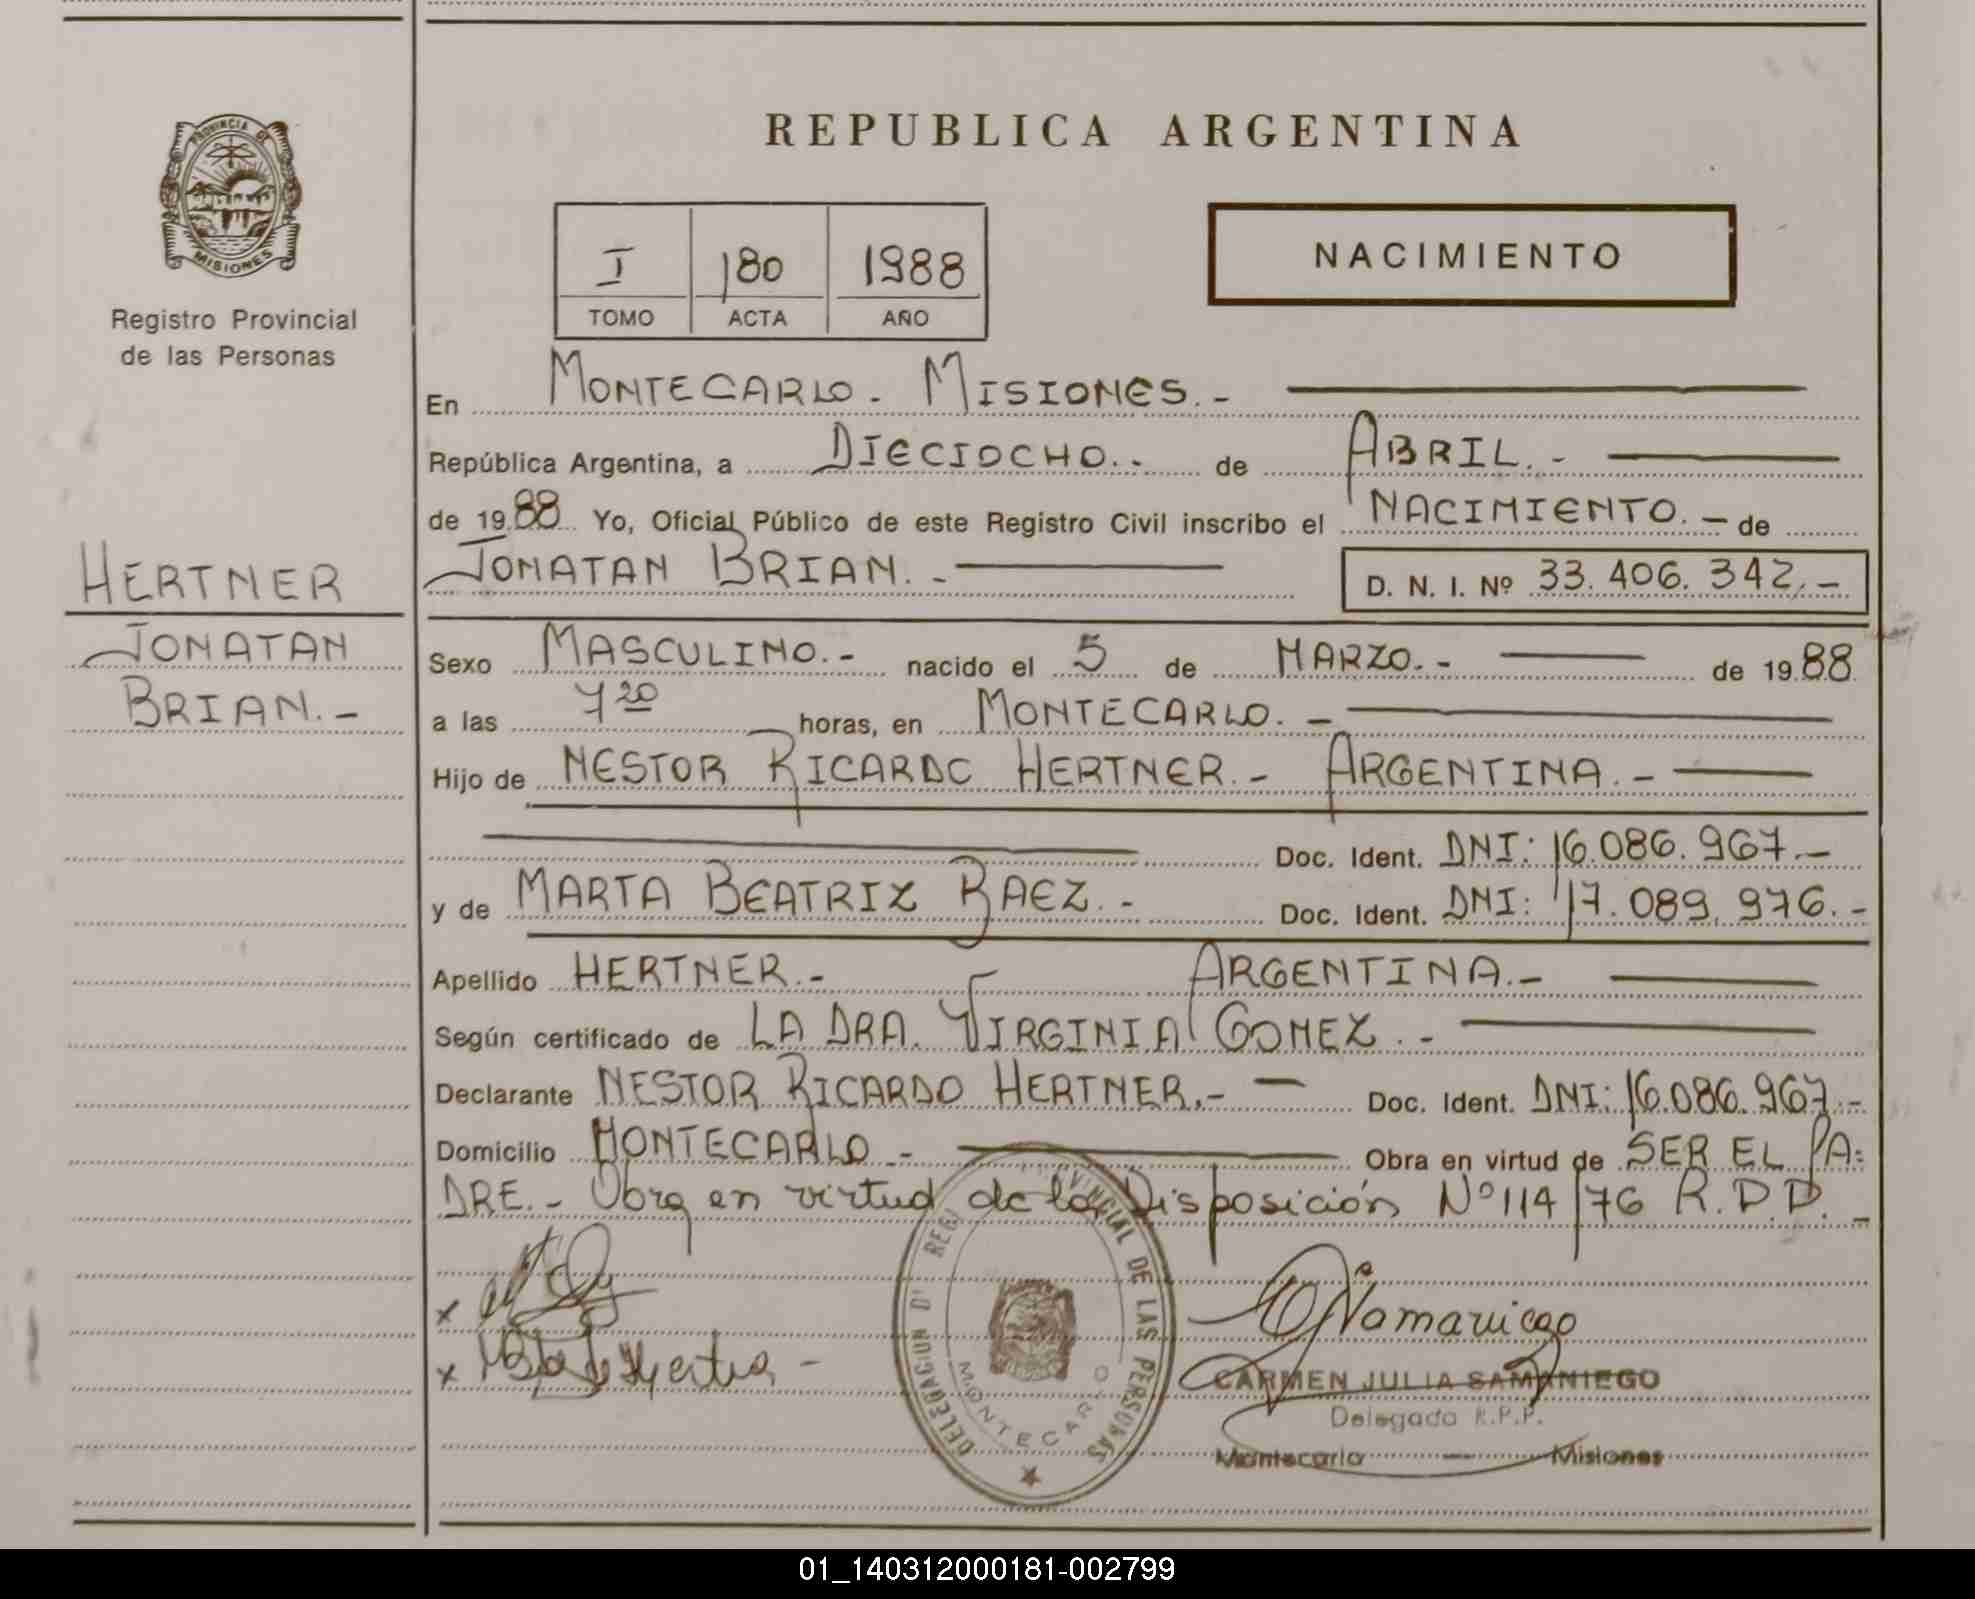 PROVINCIA DE
MISIONES
Registro Provincial
de las Personas
HERTNER
JONATAN
BRIAN.-
REPUBLICA ARGENTINA
I 180 1988
TOMO ACTA AÑO
NACIMIENTO
En MONTECARLO - MISIONES.-
República Argentina, a DIECIOCHO.- de ABRIL.-
de 1988 Yo, Oficial Público de este Registro Civil inscribo el NACIMIENTO.- de
JONATAN BRIAN.- D. N. I. Nº 33.406.342.-
Sexo MASCULINO.- nacido el 5 de MARZO.- de 1988
a las 7 20 horas, en MONTECARLO.-
Hijo de NESTOR RICARDO HERTNER.- ARGENTINA.-
Doc. Ident. DNI: 16.086.967.-
y de MARTA BEATRIZ BAEZ.- Doc. Ident. DNI: 17.089.976.-
Apellido HERTNER.- ARGENTINA.-
Según certificado de LA DRA. VIRGINIA GOMEZ.-
Declarante NESTOR RICARDO HERTNER.- Doc. Ident. DNI: 16.086.967.-
Domicilio MONTECARLO.- Obra en virtud de SER EL PA=
DRE.- Obra en virtud de la Disposición Nº 114/76 R.D.P.-
x
x
DELEGACION REGI VINCIAL DE LAS PERSONAS
MONTECARLO
CARMEN JULIA SAMANIEGO
Delegada R.P.P.
Montecarlo — Misiones
01_140312000181-002799